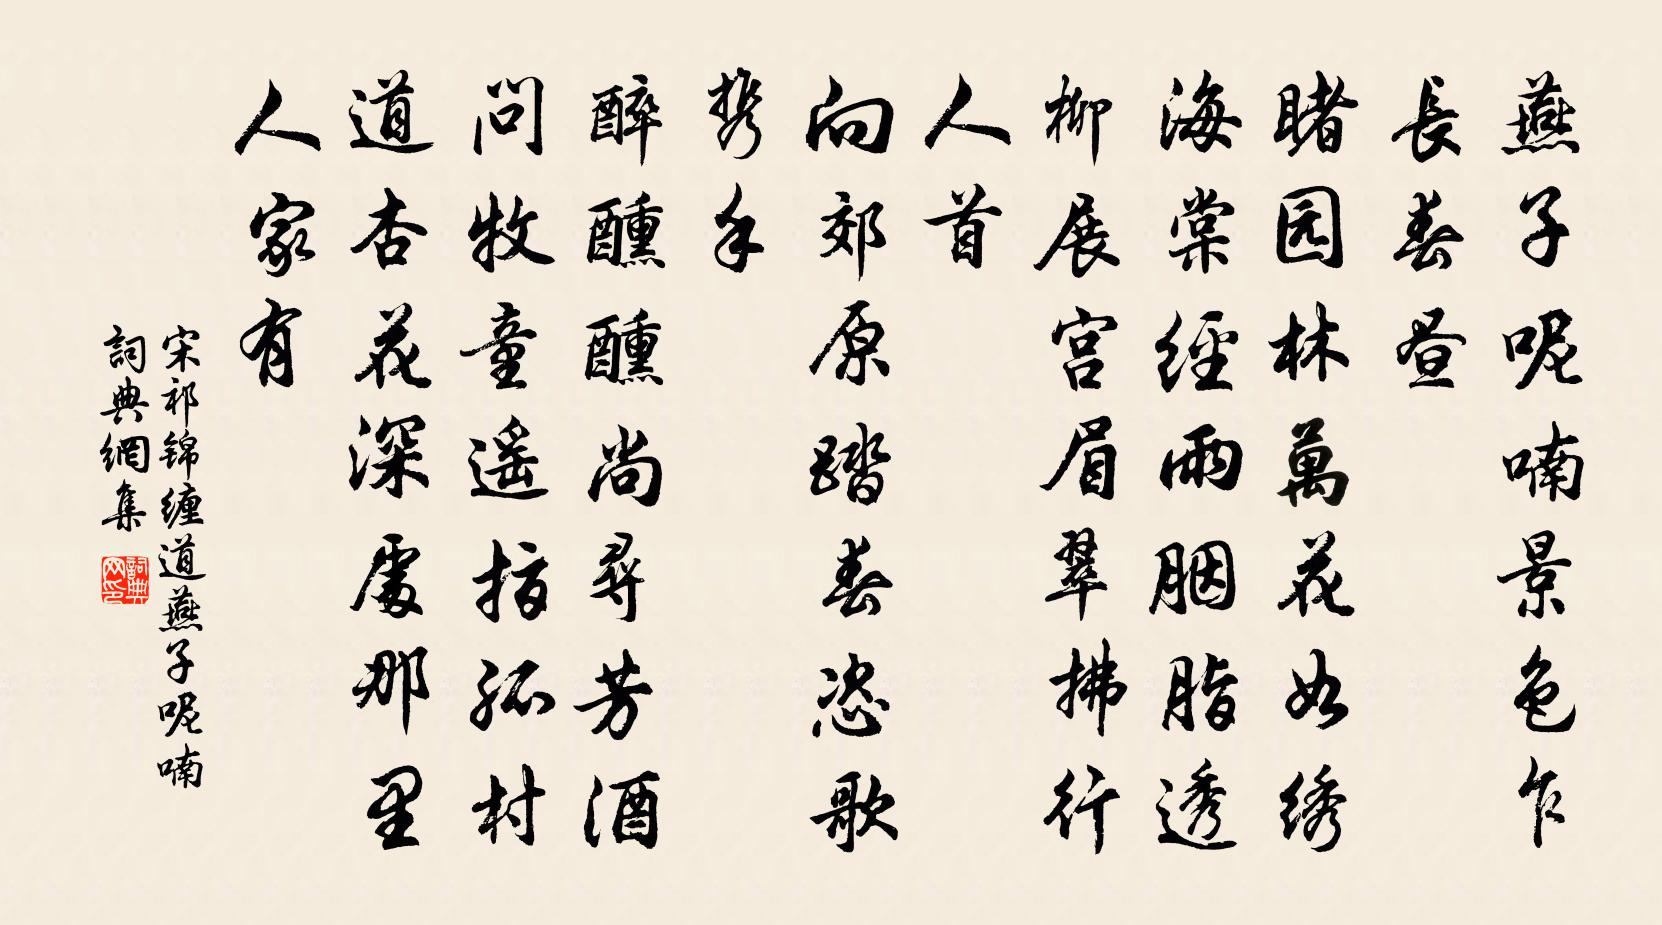 燕子呢喃景色乍
長春昼
睹园林萬花如绣
海棠經雨胭脂透
柳展宫眉翠拂行
人首
向郊原踏春恣歌
携手
醉醺醺尚尋芳酒
問牧童遥指孤村
道杏花深處那里
人家有
宋祁锦缠道燕子呢喃
詞典網集
詞典网印